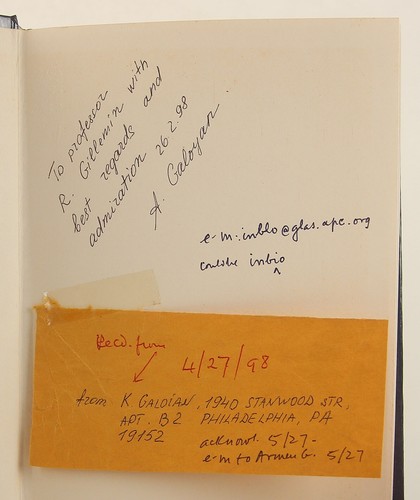 To professor
R. Gillemin with
best regards and
admiration 26.2.98
A. Galoyan.
e-m: inblo@glas.apc.org
could be inbio
^
Recd. from
4/27/98
from K GALOIAN, 1940 STANWOOD STR,
APT. B2 PHILADELPHIA, PA
19152
acknowl. 5/27-
e-m to Armen G. 5/27